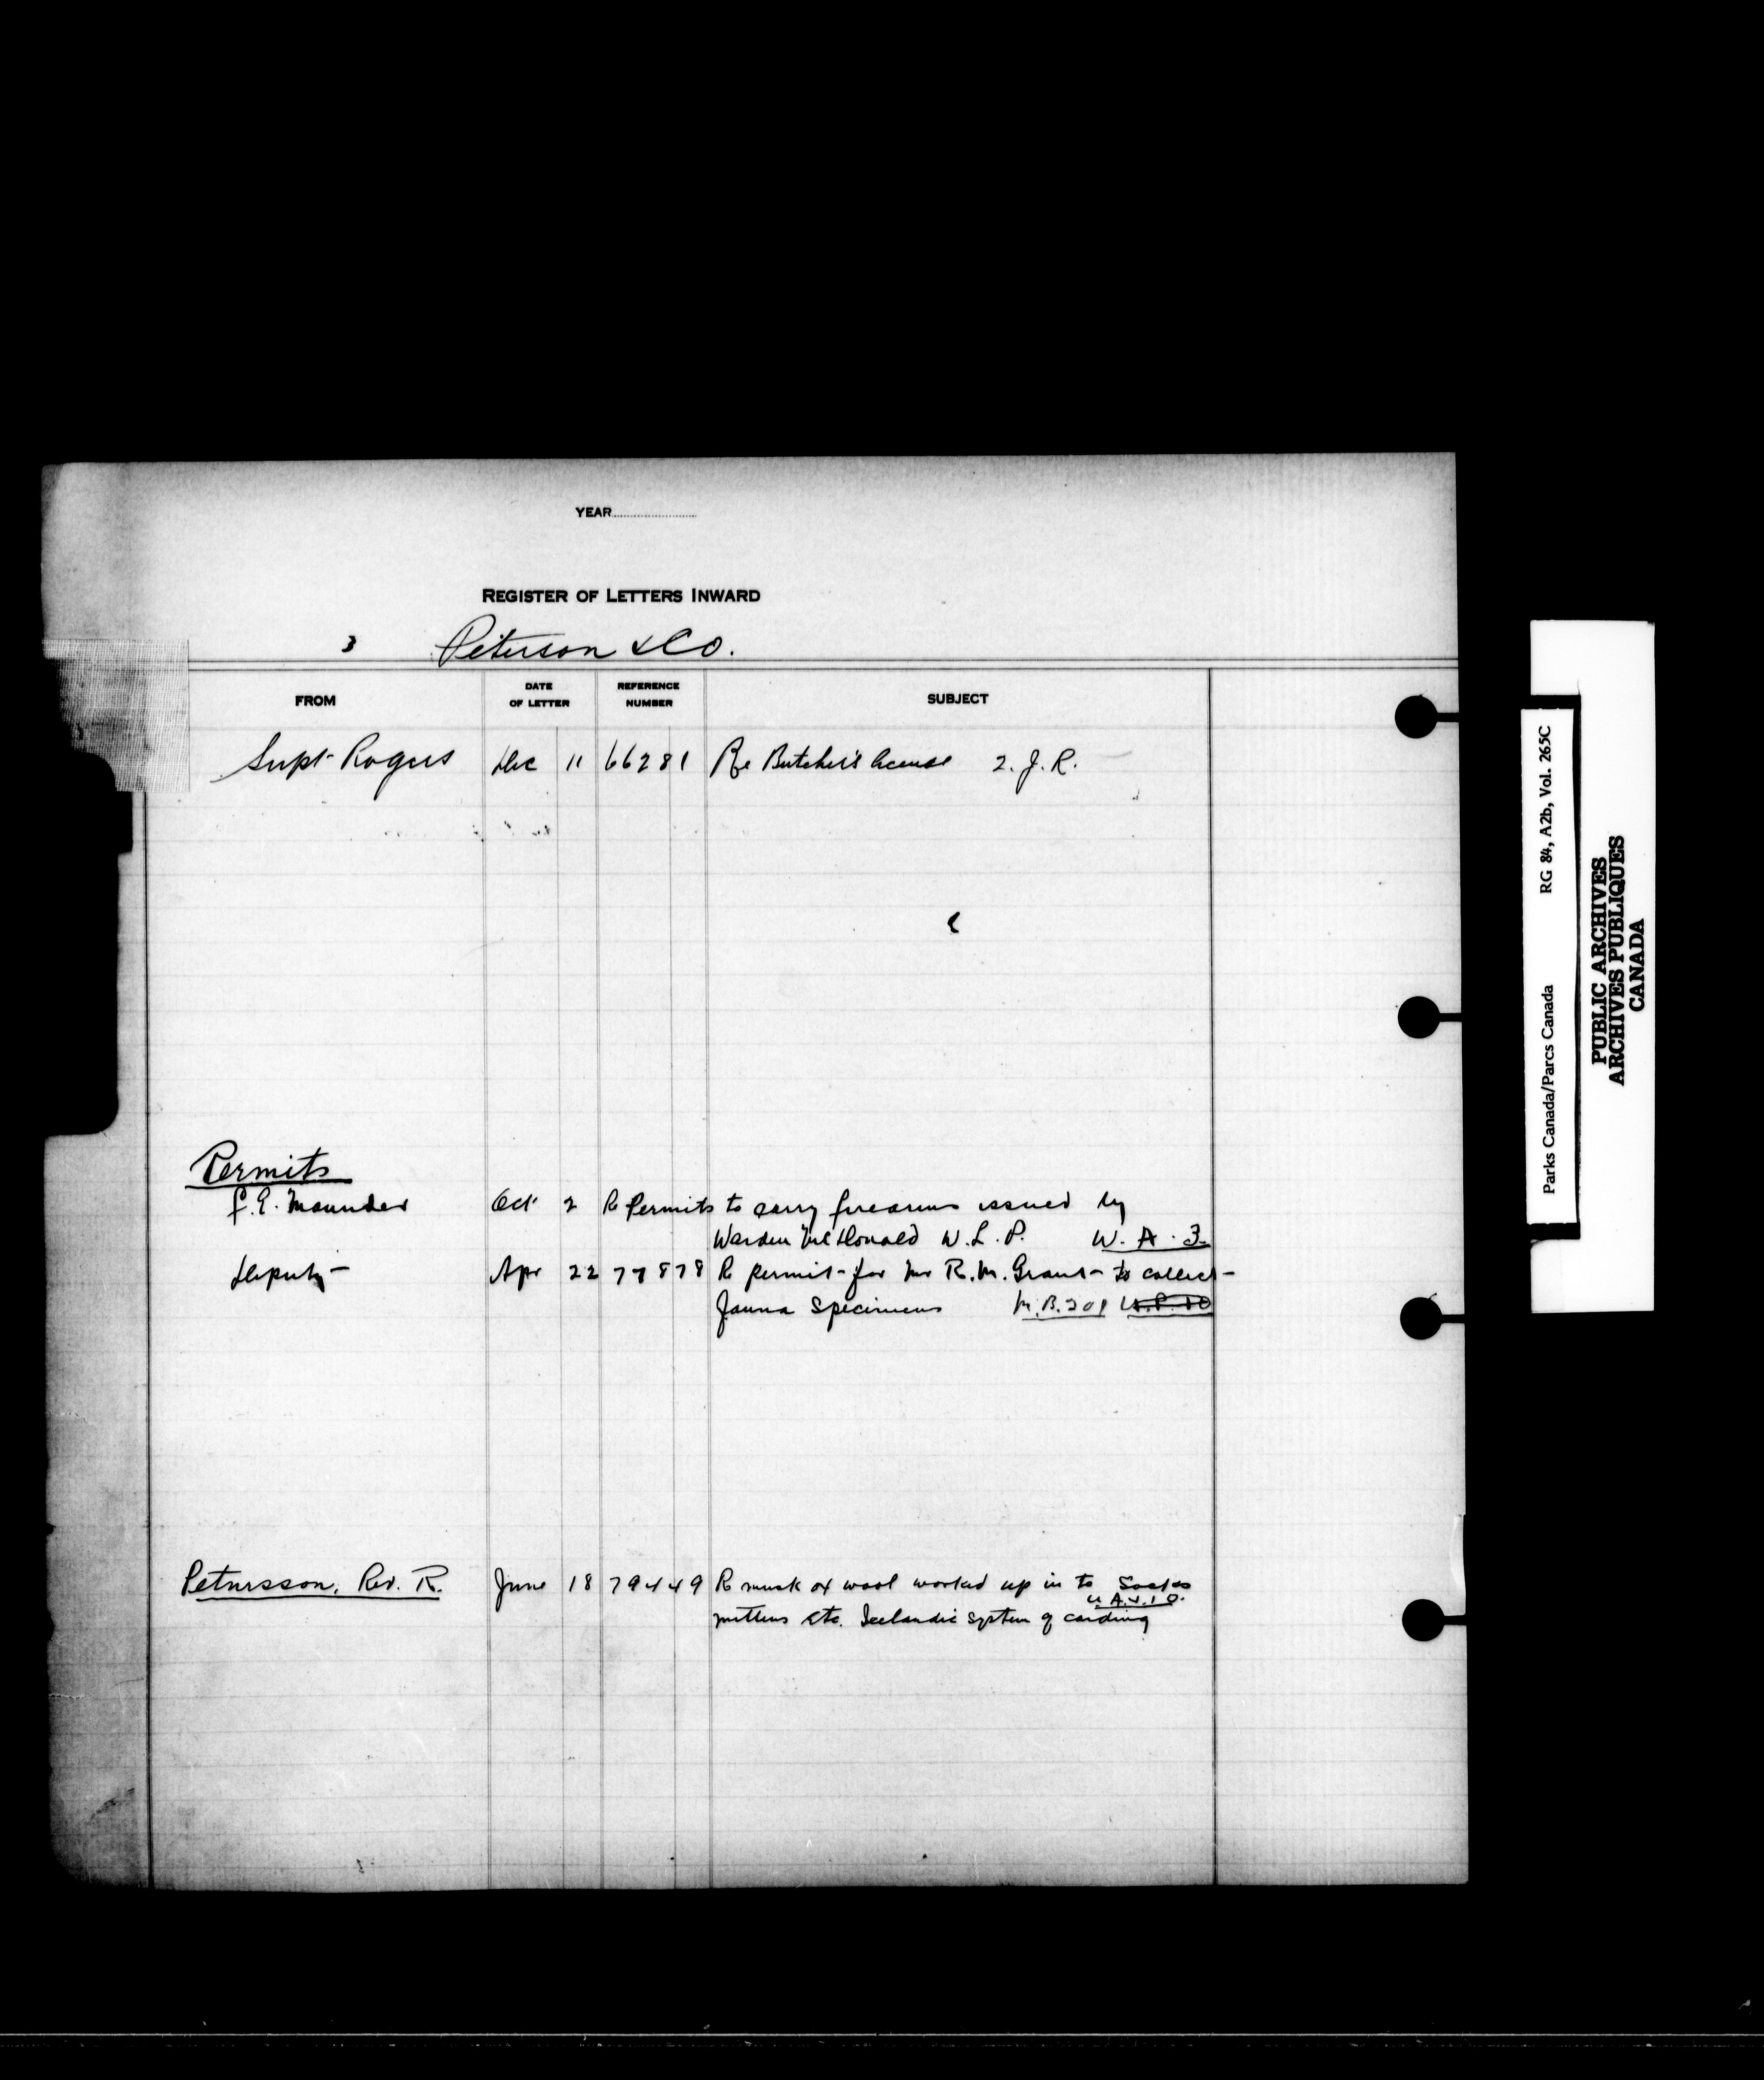 YEAR
REGISTER OF LETTERS INWARD
3 Peterson & Co.
FROM DATE OF LETTER REFERENCE NUMBER SUBJECT
Supt Rogers Dec 11 66281 Re Butcher's license 2. J. R.
Permits
Oct 2 Re Permits to carry firearms issued by
Warden McDonald W. L. P. W. A. 3
Deputy Apr 22 77878 Re permit for Mr R. M. Grant to collect
fauna specimens M. B. 201
Petursson, Rev. R. June 18 79449 Re musk ox wool worked up in to socks
U. A. V. 10.
mittens etc. Icelandic system of carding
Parks Canada/Parcs Canada RG 84, A2b, Vol. 265C
PUBLIC ARCHIVES
ARCHIVES PUBLIQUES
CANADA